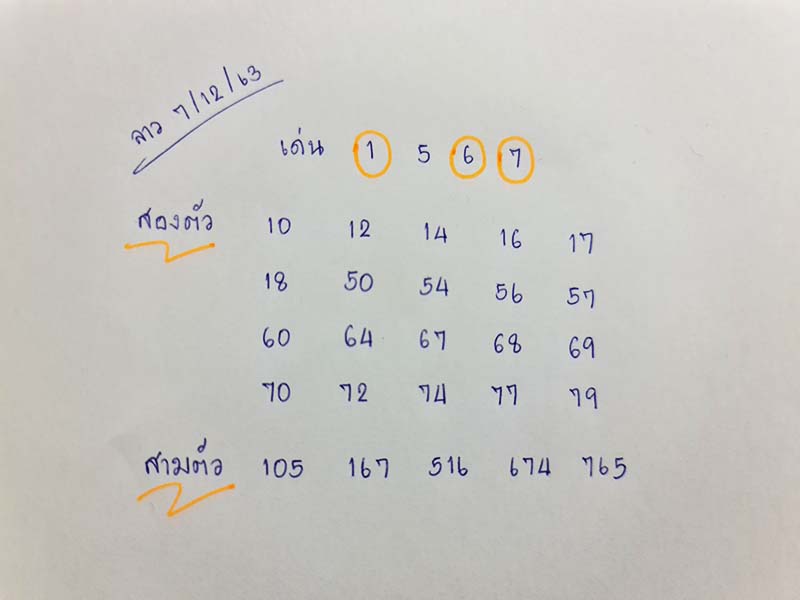 ลาว 7/12/63
เด่น 1 5 6 7
สองตัว 10 12 14 16 17
18 50 54 56 57
60 64 67 68 69
70 72 74 77 79
สามตัว 105 167 516 674 765